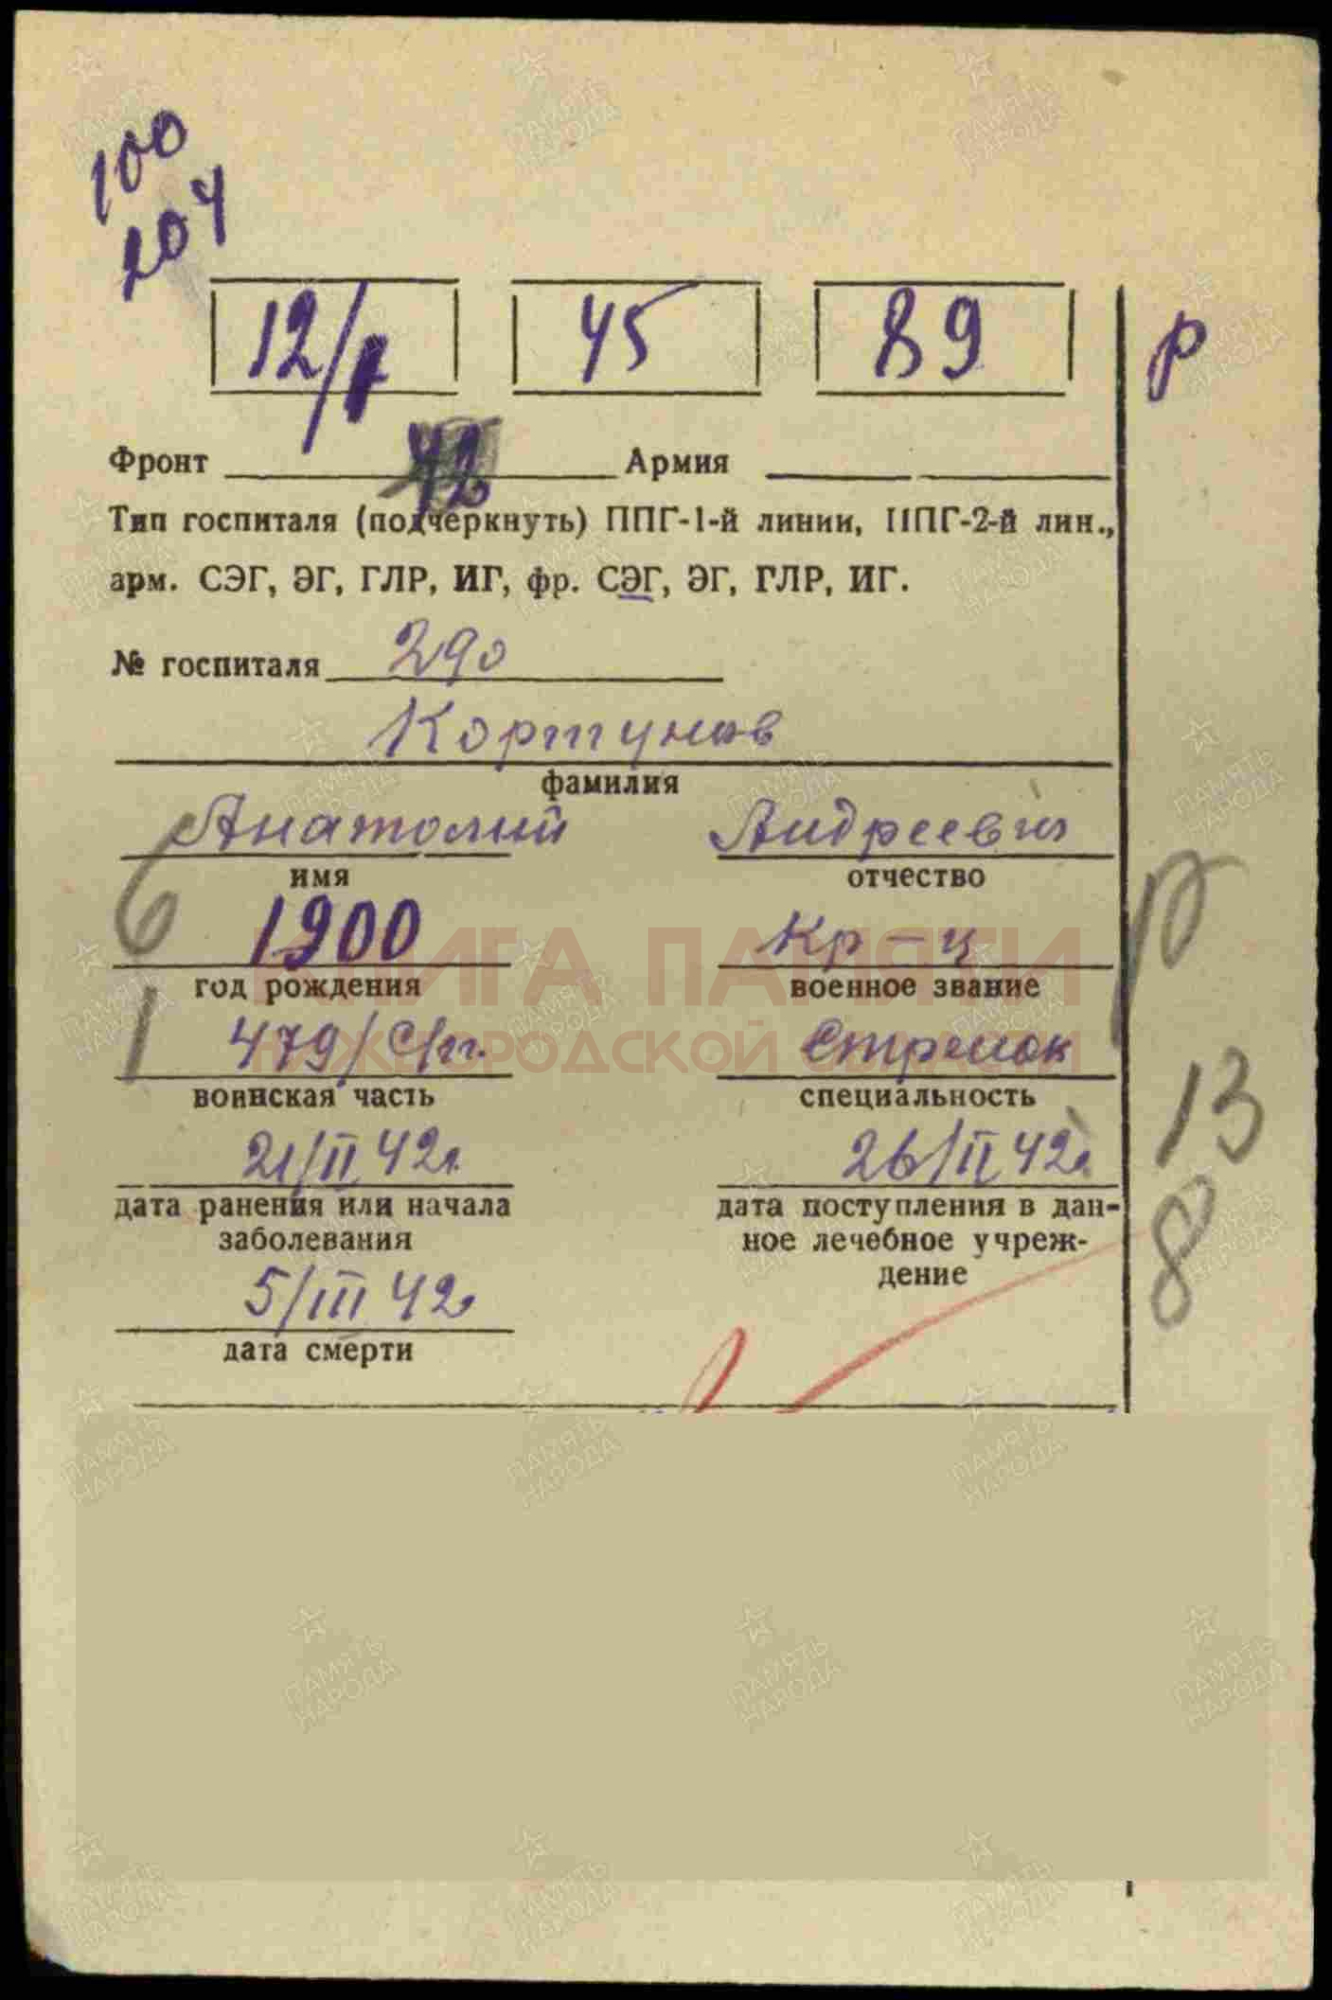 100
204
12/1 45 89
р
Фронт 42 Армия
Тип госпиталя (подчеркнуть) ППГ-1-й линии, ППГ-2-й лин.,
арм. СЭГ, ЭГ, ГЛР, ИГ, фр. СЭГ, ЭГ, ГЛР, ИГ.
№ госпиталя 290
Кортунов
фамилия
Анатолий Андреевич
имя отчество
6 1900 Кр-ц р
КНИГА ПАМЯТИ
год рождения военное звание
1 479/С/п. Стрелок
НИЖЕГОРОДСКОЙ ОБЛАСТИ
воинская часть специальность
21/II 42г. 26/II 42г. 13
дата ранения или начала
заболевания
дата поступления в дан-
ное лечебное учреж-
дение
8
5/III 42г
дата смерти
ПАМЯТЬ
НАРОДА